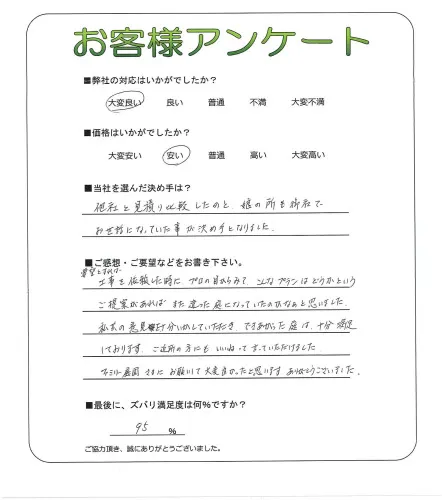 お客様アンケート
■弊社の対応はいかがでしたか？
大変良い 良い 普通 不満 大変不満
■価格はいかがでしたか？
大変安い 安い 普通 高い 大変高い
■当社を選んだ決め手は？
他社と見積り比較したのと、娘の所も御社で
お世話になっていた事が決め手となりました。
■ご感想・ご要望などをお書き下さい。
要望とすれば
工事を依頼した時に、プロの目からみて、こんなプランはどうかという
ご提案があれば また違った庭になっていたのかなぁと思いました。
私共の意見 十分いかしていただき できあがった庭は、十分満足
しております。ご近所の方にも いいねって 言っていただけました
ファミリー庭園 さまに お願いして 大変良かったと思います ありがとうございました。
■最後に、ズバリ満足度は何％ですか？
95 ％
ご協力頂き、誠にありがとうございました。